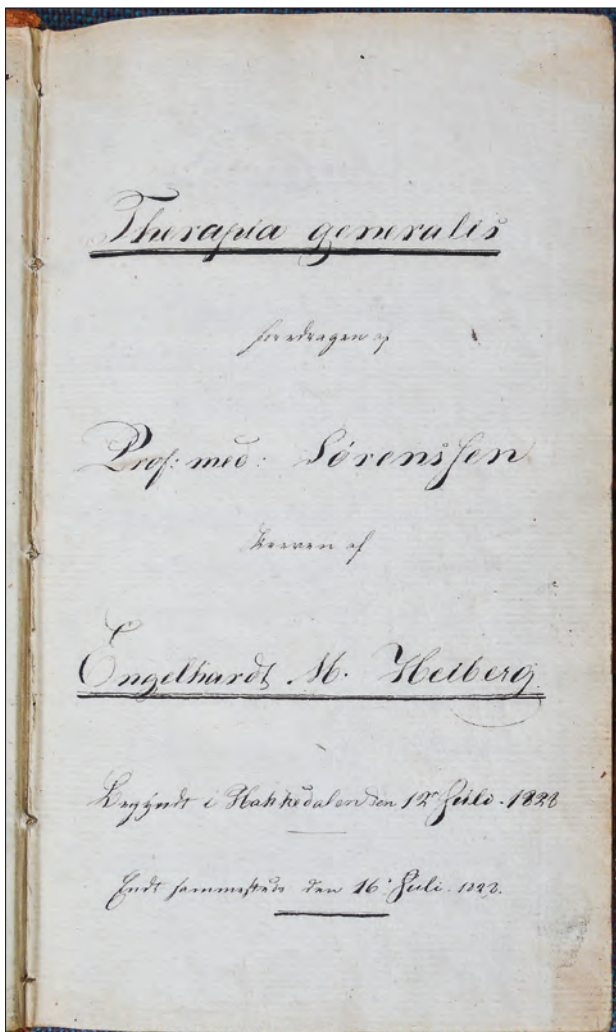 Therapia generalis
foredragen af
Prof: med: Sørenssen
skreven af
Engelhardt M. Heiberg
Begyndt i Hakkedalen den 12 Juli. 1828
Endt sammesteds den 16 Juli. 1828.